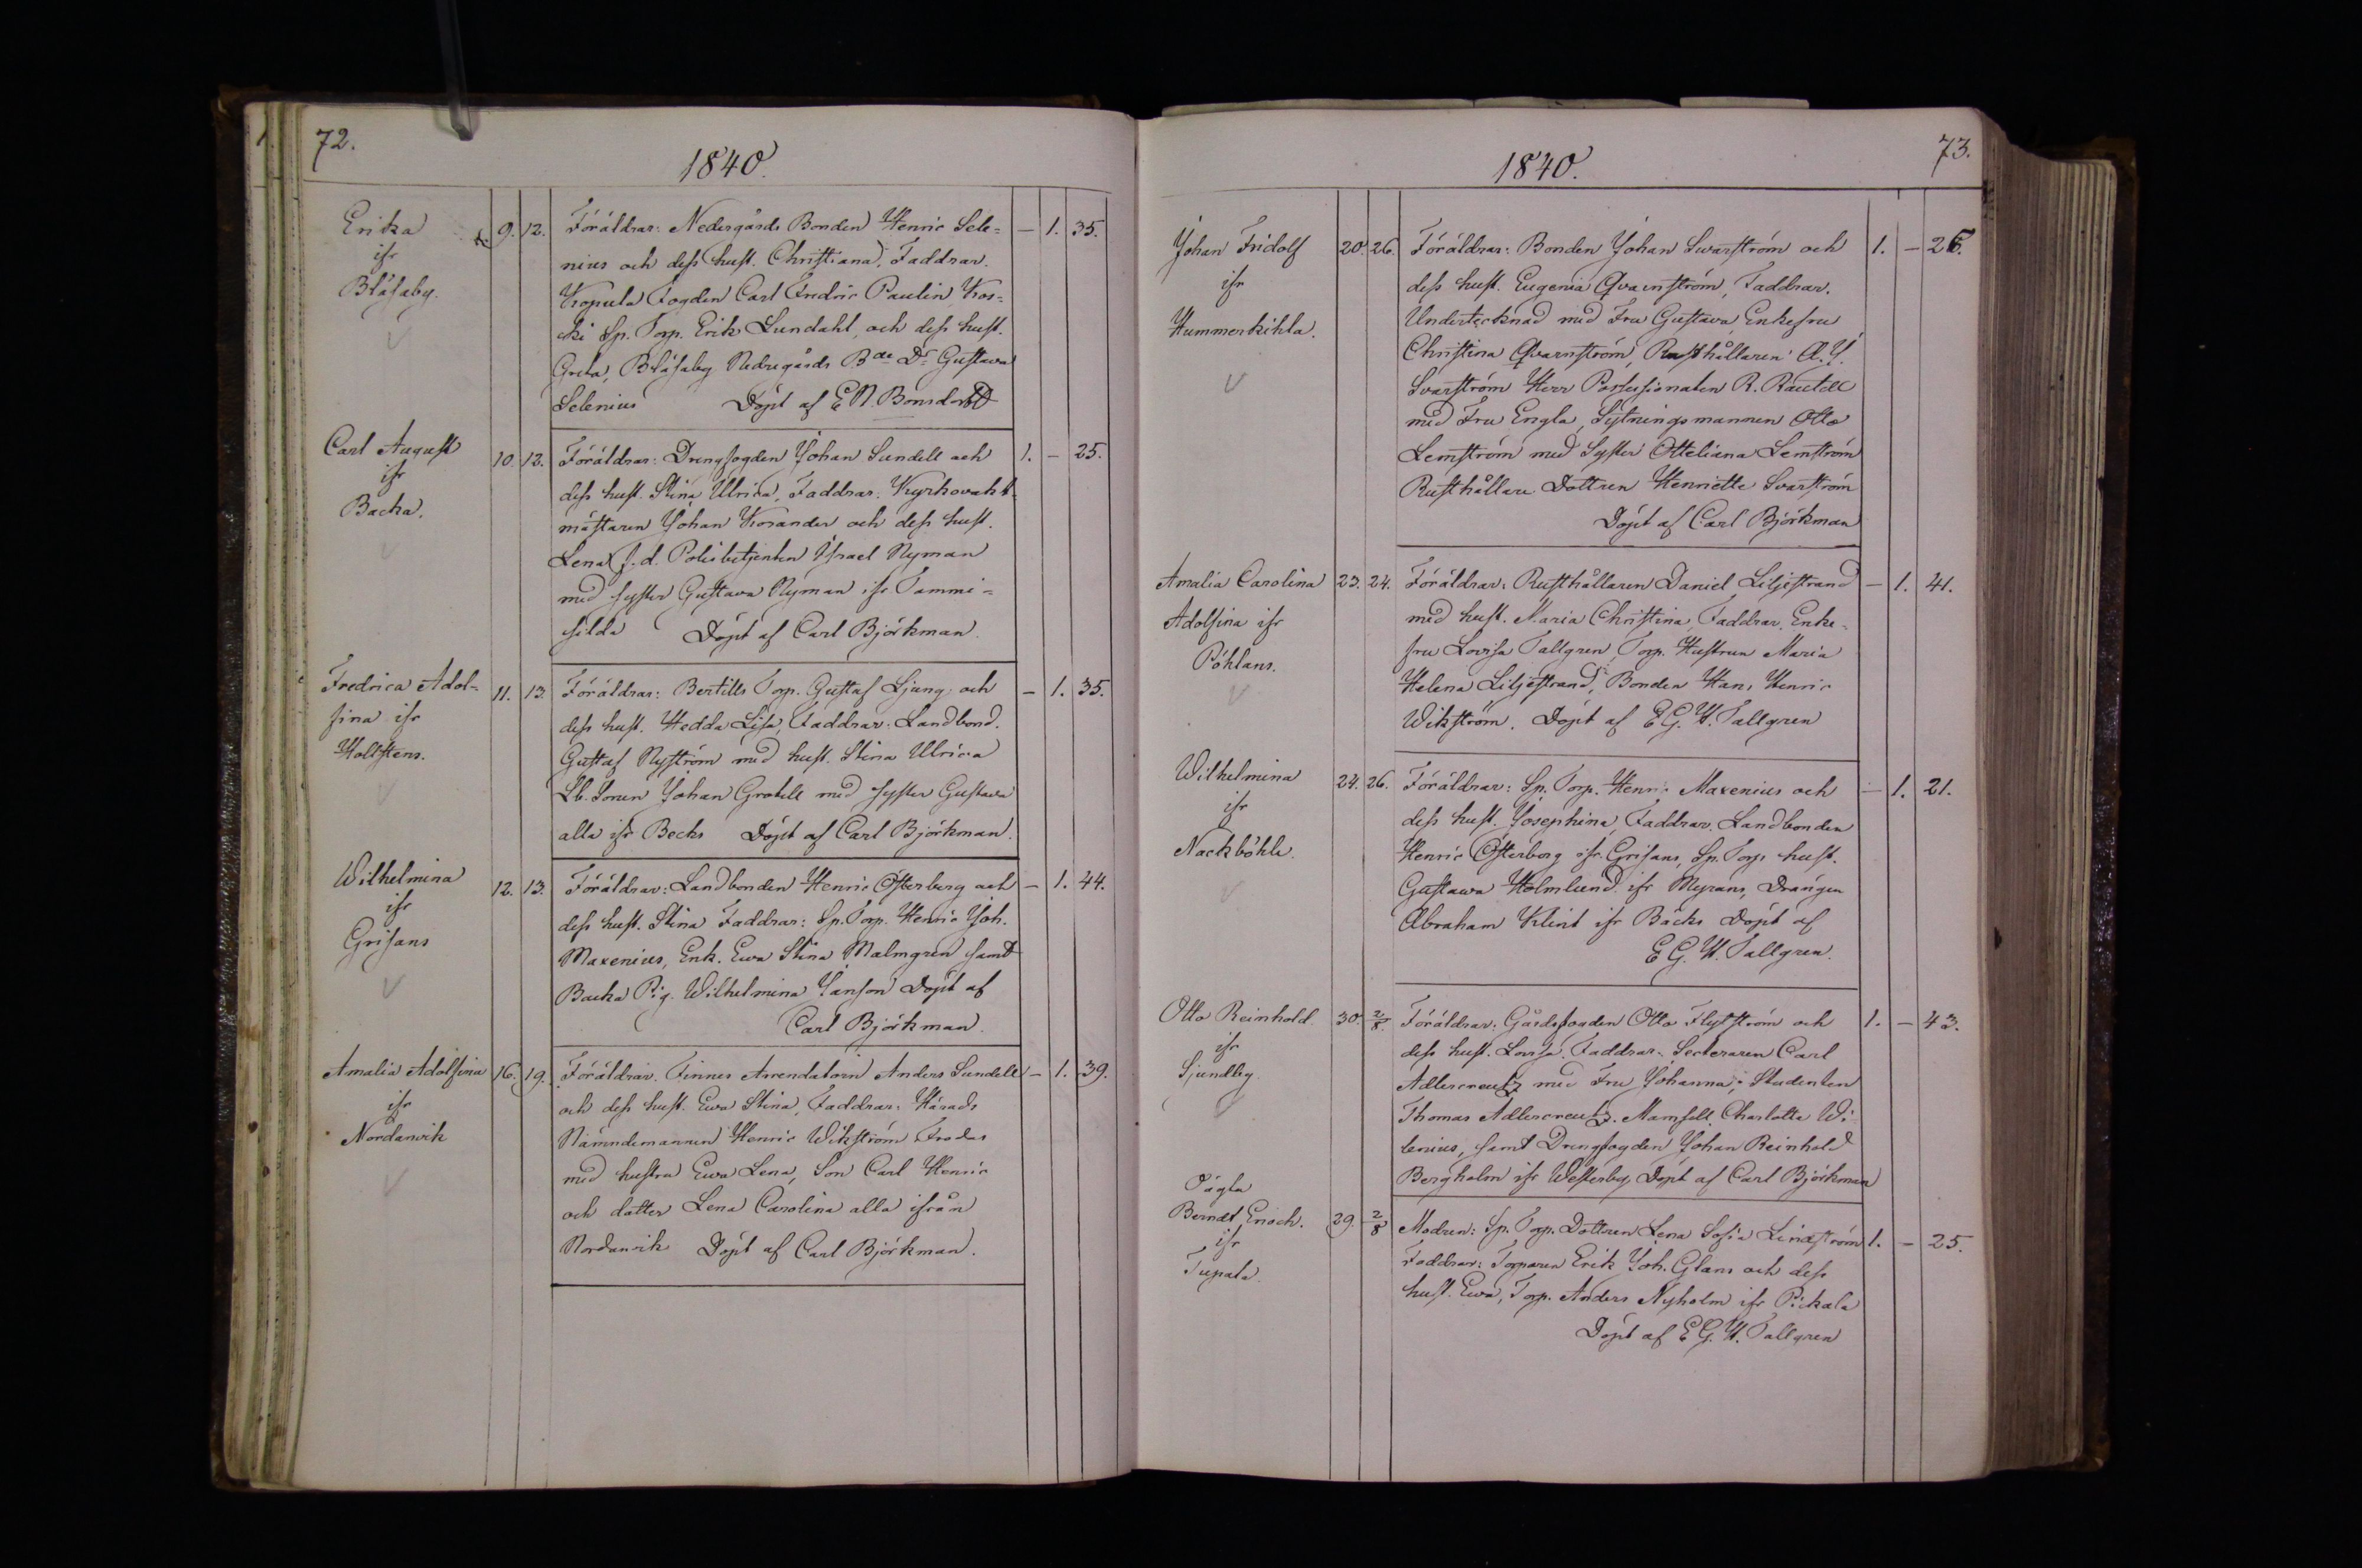 72.
1840.
Erika
ifr
Blåsaby.
9. 12. Föräldrar: Nedergårds Bonden Henric Sele= — 1. 35.
nius och dess hust. Christiana, Faddrar.
Kopula Fogden Carl Fredric Paulin Kos=
cki Sp. Torp. Erik Lundahl, och dess hust.
Greta, Blåsaby Nedregårds Bde Dr Gustava
Selenius Döpt af E N. Bonsdorff
Carl August
ifr
Backa.
10. 12. Föräldrar: Drengfogden Johan Sundell och 1. — 25.
dess hust. Stina Ulrica, Faddrar: Kyrkovakt-
mästaren Johan Korander och dess hust.
Lena, f.d. Polisbetjenten Israel Nyman
med syster Gustava Nyman ifr Tammi=
silda Döpt af Carl Björkman.
Fredrica Adol=
fina ifr
Holstens.
11. 13. Föräldrar: Bertills Torp. Gustaf Ljung: och — 1. 35.
dess hust. Hedda Lisa, Faddrar: Landbond.
Gustaf Nyström med hust. Stina Ulrica
Lb. Sonen Johan Grotell med syster Gustava
alla ifr Becks Döpt af Carl Björkman.
Wilhelmina
ifr
Grisans
12. 13. Föräldrar: Landbonden Henric Österberg och — 1. 44.
dess hust. Stina Faddrar: Sp. Torp. Henric Joh.
Maxenius, Enk. Ewa Stina Malmgren samt
Backa Pig. Wilhelmina Janson Döpt af
Carl Björkman.
Amalia Adolfina
ifr
Nordanvik
16. 19. Föräldrar. Finnes Arrendatorn Anders Sundell — 1. 39.
och dess hust. Ewa Stina, Faddrar: Härads
Nämndemannen Henric Wikström Frodes
med hustru Ewa Lena, Son Carl Henric
och dotter Lena Carolina alla ifrån
Nordanvik Döpt af Carl Björkman.
73.
1840.
Johan Fridolf
ifr
Hummerkihla.
20. 26. Föräldrar: Bonden Johan Svarström och 1. — 26.
dess hust. Eugenia Qvarnström, Faddrar.
Undertecknad med Fru Gustava, Enkefru
Christina Qvarnström, Rusthållaren A. J.
Svarström Herr Possessionaten R. Rautell
med Fru Engla, Sytningsmannen Otto
Lemström med Syster Otteliana Lemström
Rusthållare Dottren Henriette Svarström
Döpt af Carl Björkman
Amalia Carolina
Adolfina ifr
Pöhlans.
23. 24. Föräldrar: Rusthållaren Daniel Liljestrand — 1. 41.
med hust. Maria Christina, Faddrar. Enke=
fru Lovisa Tallgren, Torp. Hustrun Maria
Helena Liljestrand, Bonden Hans Henric
Wikström. Döpt af E G. W. Tallgren
Wilhelmina
ifr
Nackböhle.
24. 26. Föräldrar: Sp. Torp. Henric Maxenius och — 1. 21.
dess hust. Josephina, Faddrar. Landbonden
Henric Österberg ifr Grisans, Sp. Torp. hust.
Gustawa Holmlund ifr Myrans, Drängen
Abraham Klint ifr Bäcks Döpt af
E G. W. Tallgren.
Otto Reinhold.
ifr
Sjundby.
30. 2/8. Föräldrar: Gårdsfogden Otto Flytström och 1. — 43.
dess hust. Lovisa. Faddrar: Secteraren Carl
Adlercreutz med Fru Johanna, Studenten
Thomas Adlercreutz. Mamsell Charlotta Wi=
lenius, samt Drengfogden Johan Reinhold
Bergholm ifr Westerby, Döpt af Carl Björkman
Oägta
Berndt Enoch.
ifr
Tupala.
29. 2/8 Modren: Sp. Torp. Dottren Lena Sofia Lindström 1. — 25.
Faddrar: Torparen Erik Joh. Glans och dess
hust. Ewa, Torp. Anders Nyholm ifr Pickala
Döpt af E G. W. Tallgren